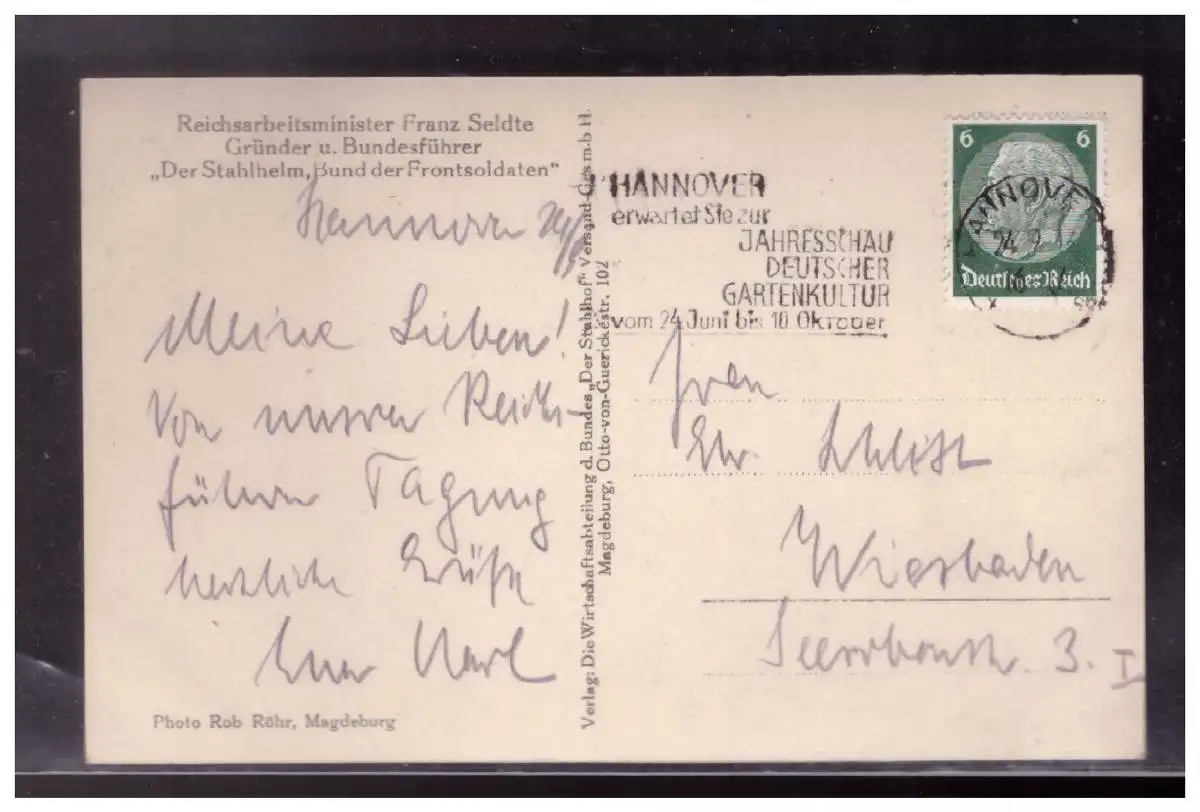 Reichsarbeitsminister Franz Seldte
Gründer u. Bundesführer
„Der Stahlhelm, Bund der Frontsoldaten“
Hannover
Meine Lieben!
Von unserer Reichs-
führer Tagung
herzliche Grüße
Euer Karl
Photo Rob Röhr, Magdeburg
Verlag: Die Wirtschaftsabteilung d. Bundes „Der Stahlhof“ Versand-Ges. m. b H.
Magdeburg, Otto-von-Guerickestr. 102
HANNOVER
erwartet Sie zur
JAHRESSCHAU
DEUTSCHER
GARTENKULTUR
vom 24 Juni bis 10 Oktober
6 6
Deutsches Reich
HANNOVE
24 9
Wiesbaden
3. I